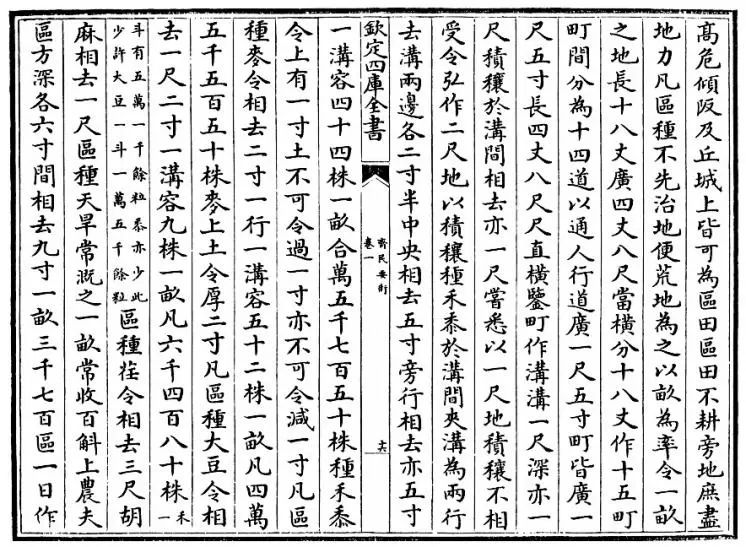 高危傾阪及丘城上皆可為區田區田不耕旁地庶盡
地力凡區種不先治地便荒地為之以畝為率令一畝
之地長十八丈廣四丈八尺當橫分十八丈作十五町
町間分為十四道以通人行道廣一尺五寸町皆廣一
尺五寸長四丈八尺尺直橫鑿町作溝溝一尺深亦一
尺積穰於溝間相去亦一尺嘗悉以一尺地積穰不相
受令弘作二尺地以積穰種禾黍於溝間夾溝為兩行
去溝兩邊各二寸半中央相去五寸旁行相去亦五寸
欽定四庫全書
齊民要術
卷一
十六
一溝容四十四株一畝合萬五千七百五十株種禾黍
令上有一寸土不可令過一寸亦不可令減一寸凡區
種麥令相去二寸一行一溝容五十二株一畝凡四萬
五千五百五十株麥上土令厚二寸凡區種大豆令相
去一尺二寸一溝容九株一畝凡六千四百八十株禾一
斗有五萬一千餘粒黍亦少此
少許大豆一斗一萬五千餘粒
區種荏令相去三尺胡
麻相去一尺區種天旱常溉之一畝常收百斛上農夫
區方深各六寸間相去九寸一畝三千七百區一日作